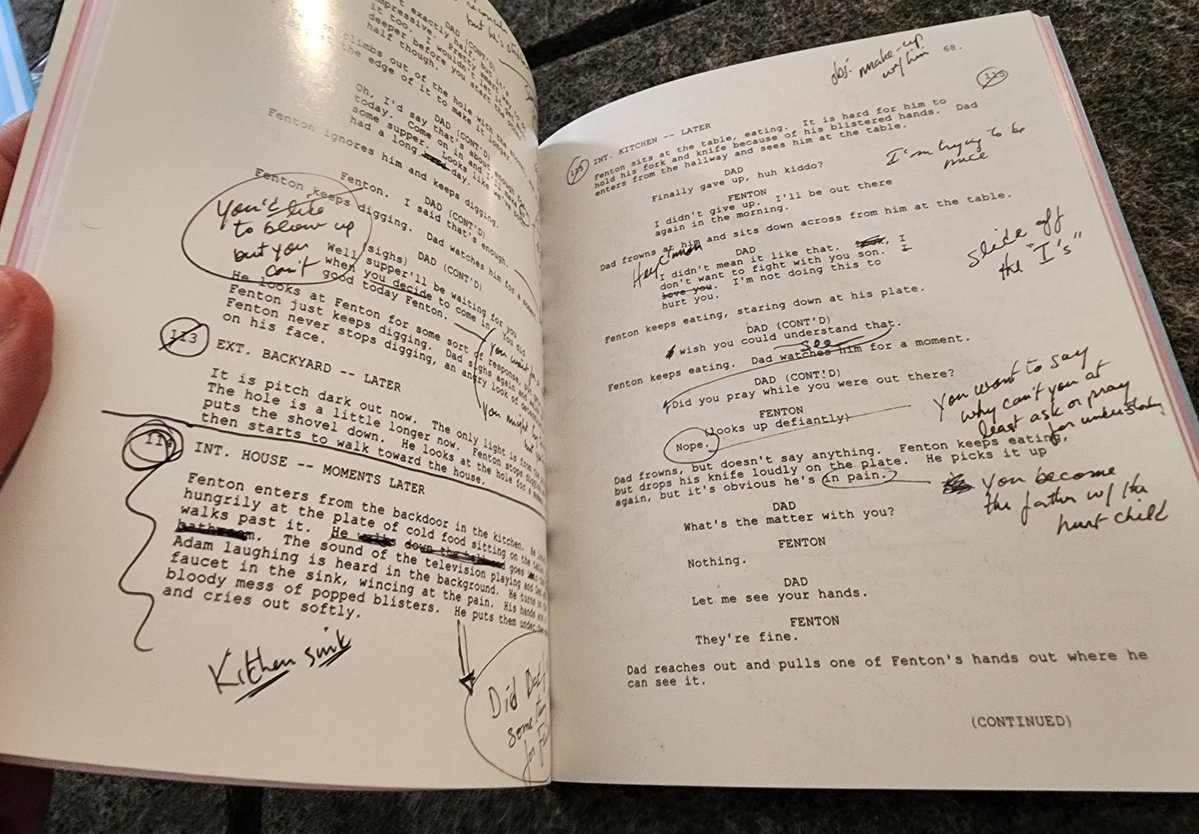 but he's
t exactly half, but it's
DAD (CONT'D)
impressive.
it too. I wouldn't
deeper before you start
half though.
climbs out of the hole with the
at the edge of it to make it longer.
DAD (CONT'D)
Oh, I'd say that's about enough
today. Come on in and I'll make
some supper. Looks like
had a long day.
Fenton ignores him and keeps digging.
DAD (CONT'D)
Fenton. I said that's enough.
Fenton keeps digging. Dad watches him for a
You'd like
to blow up
but you
can't
DAD (CONT'D)
(sighs)
Well, supper'll be waiting for you
when you decide to come in. You did
good today Fenton.
He looks at Fenton for some sort of response,
Fenton just keeps digging. Dad sighs again and
Fenton never stops digging, an angry look of
on his face.
113
EXT. BACKYARD -- LATER
It is pitch dark out now. The only light is from the
The hole is a little longer now. Fenton stops digging
puts the shovel down. He looks at the hole for a
then starts to walk toward the house.
114
INT. HOUSE -- MOMENTS LATER
Fenton enters from the backdoor in the kitchen. He
hungrily at the plate of cold food sitting on the
walks past it. He walks down the goes
bathroom. The sound of the television playing and
Adam laughing is heard in the background. He turns on
faucet in the sink, wincing at the pain. His hands
bloody mess of popped blisters. He puts them under
and cries out softly.
Kitchen sink
Did Dad
some
for
obj: make-up
w/ him
68.
115
115
INT. KITCHEN -- LATER
Fenton sits at the table, eating. It is hard for him to
hold his fork and knife because of his blistered hands. Dad
enters from the hallway and sees him at the table.
I'm trying to be
nice
DAD
Finally gave up, huh kiddo?
FENTON
I didn't give up. I'll be out there
again in the morning.
Dad frowns at him and sits down across from him at the table.
DAD
I didn't mean it like that. I
don't want to fight with you son. I
love you. I'm not doing this to
hurt you.
slide off
the "I's"
Fenton keeps eating, staring down at his plate.
DAD (CONT'D)
I wish you could understand that.
see
Fenton keeps eating. Dad watches him for a moment.
DAD (CONT'D)
Did you pray while you were out there?
FENTON
(looks up defiantly)
Nope.
You want to say
why can't you at
least ask or pray
for understanding
Dad frowns, but doesn't say anything. Fenton keeps eating,
but drops his knife loudly on the plate. He picks it up
again, but it's obvious he's in pain.
you become
the father w/ the
hurt child
DAD
What's the matter with you?
FENTON
Nothing.
DAD
Let me see your hands.
FENTON
They're fine.
Dad reaches out and pulls one of Fenton's hands out where he
can see it.
(CONTINUED)